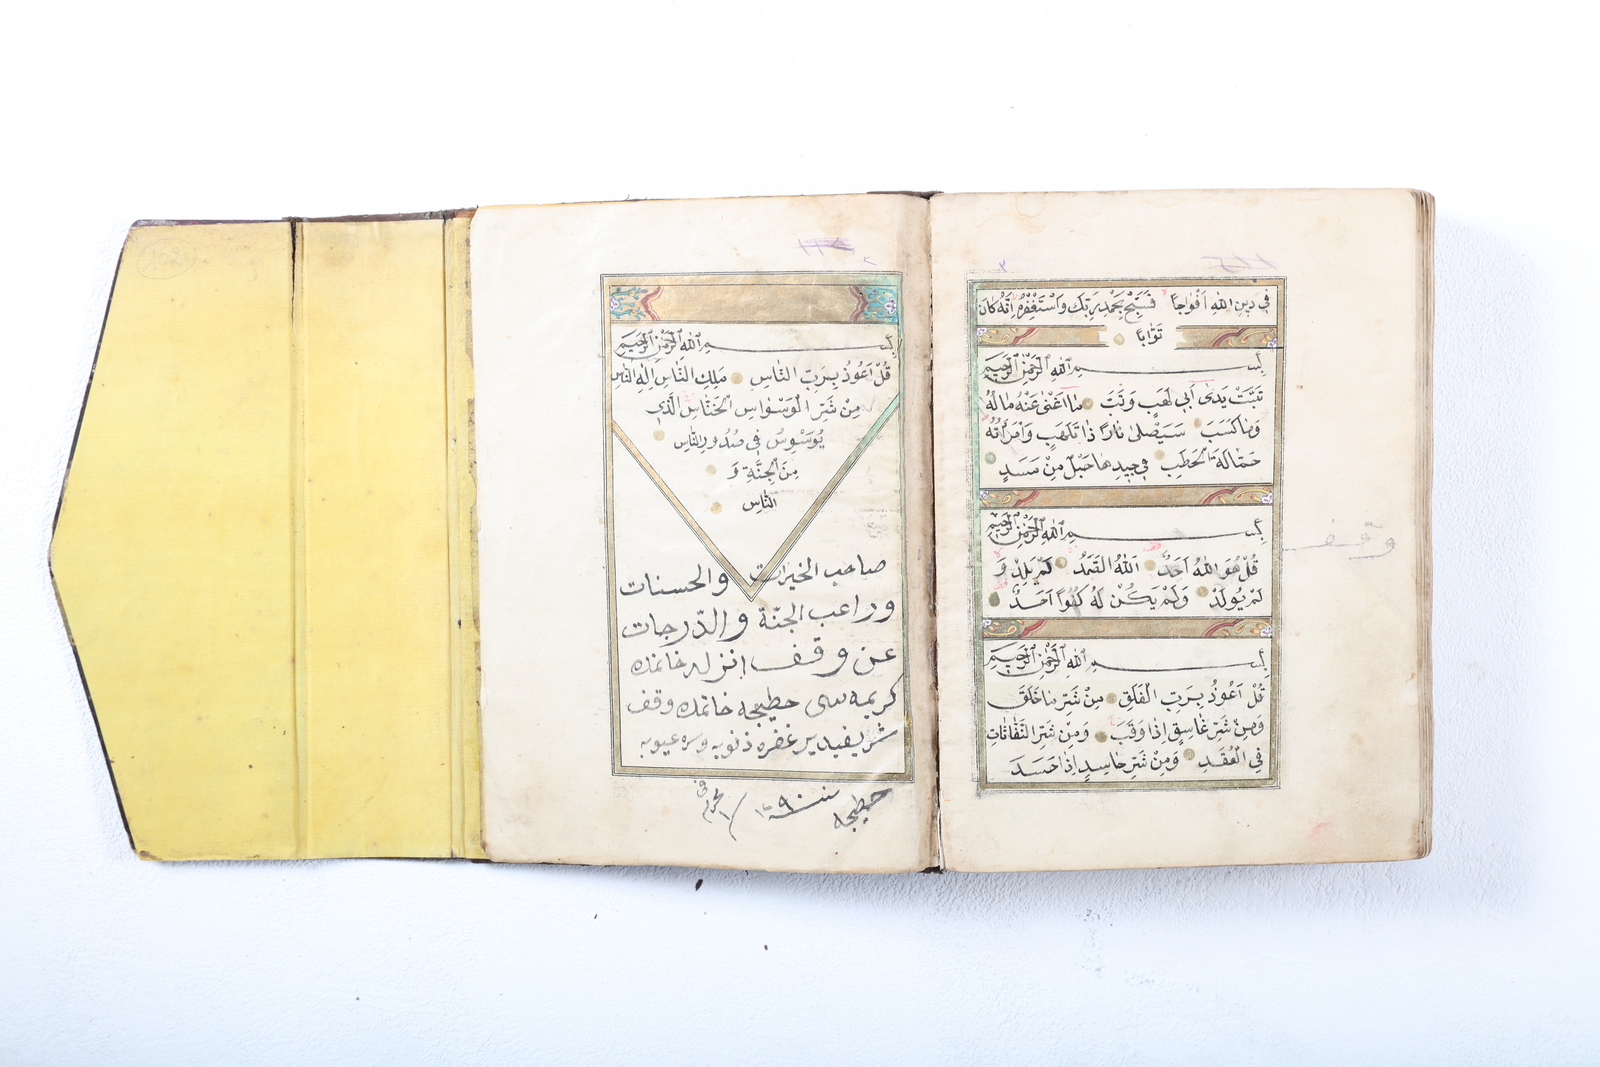 في دين الله افواجا فسبح بحمد ربك واستغفره انه كان
توابا
بسم الله الرحمن الرحيم
تبت يدى ابى لهب وتب ما اغنى عنه ماله
وما كسب سيصلى نارا ذا تلهب وامراته
حمالة الحطب فى جيدها حبل من مسد
بسم الله الرحمن الرحيم
قل هو الله احد الله الصمد لم يلد و
لم يولد ولم يكن له كفوا احد
بسم الله الرحمن الرحيم
قل اعوذ برب الفلق من شر ما خلق
ومن شر غاسق اذا وقب ومن شر النفاثات
في العقد ومن شر حاسد اذا حسد
وقف
بسم الله الرحمن الرحيم
قل اعوذ برب الناس ملك الناس اله الناس
من شر الوسواس الخناس الذى
يوسوس فى صدور الناس
من الجنة و
الناس
صاحب الخيرات والحسنات
وراغب الجنة والدرجات
عن وقف
كريمه سى خطيجه خاتمده وقف
شريفيدير غفره ذنوبه وستره عيوبه
خطيجه سنة ١٢٩٠